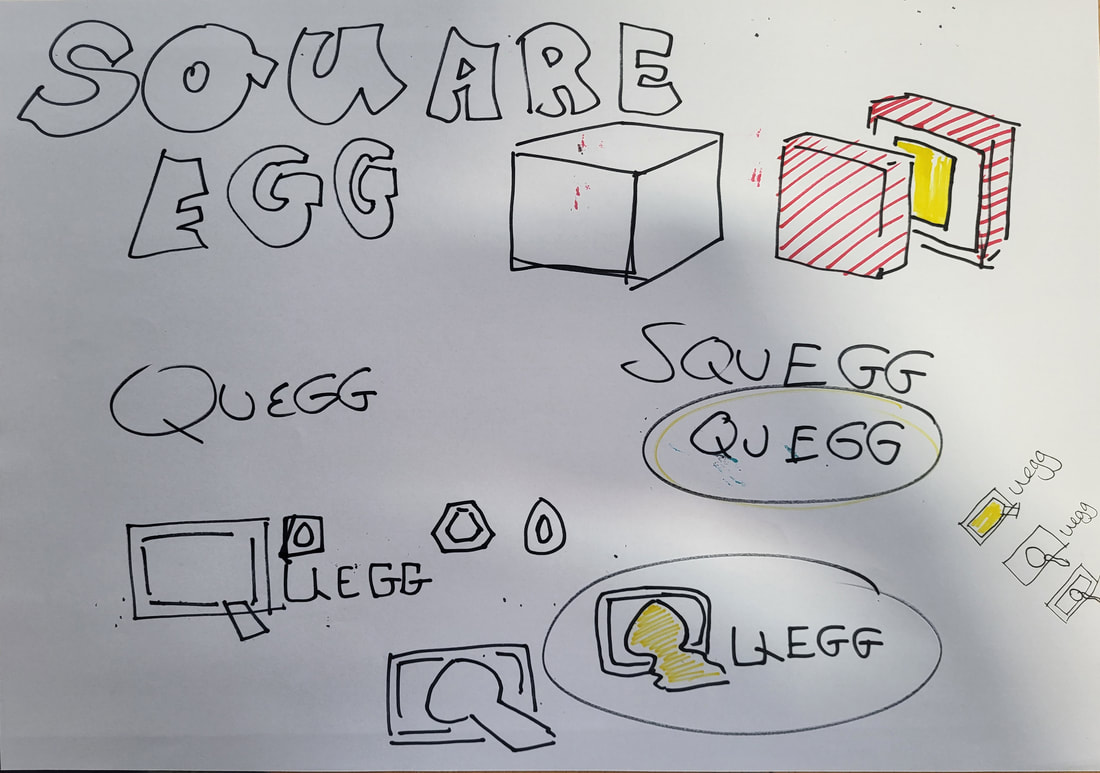 SQUARE
EGG
SQUEGG
QUEGG
QUEGG
UEGG
UEGG
uegg
uegg